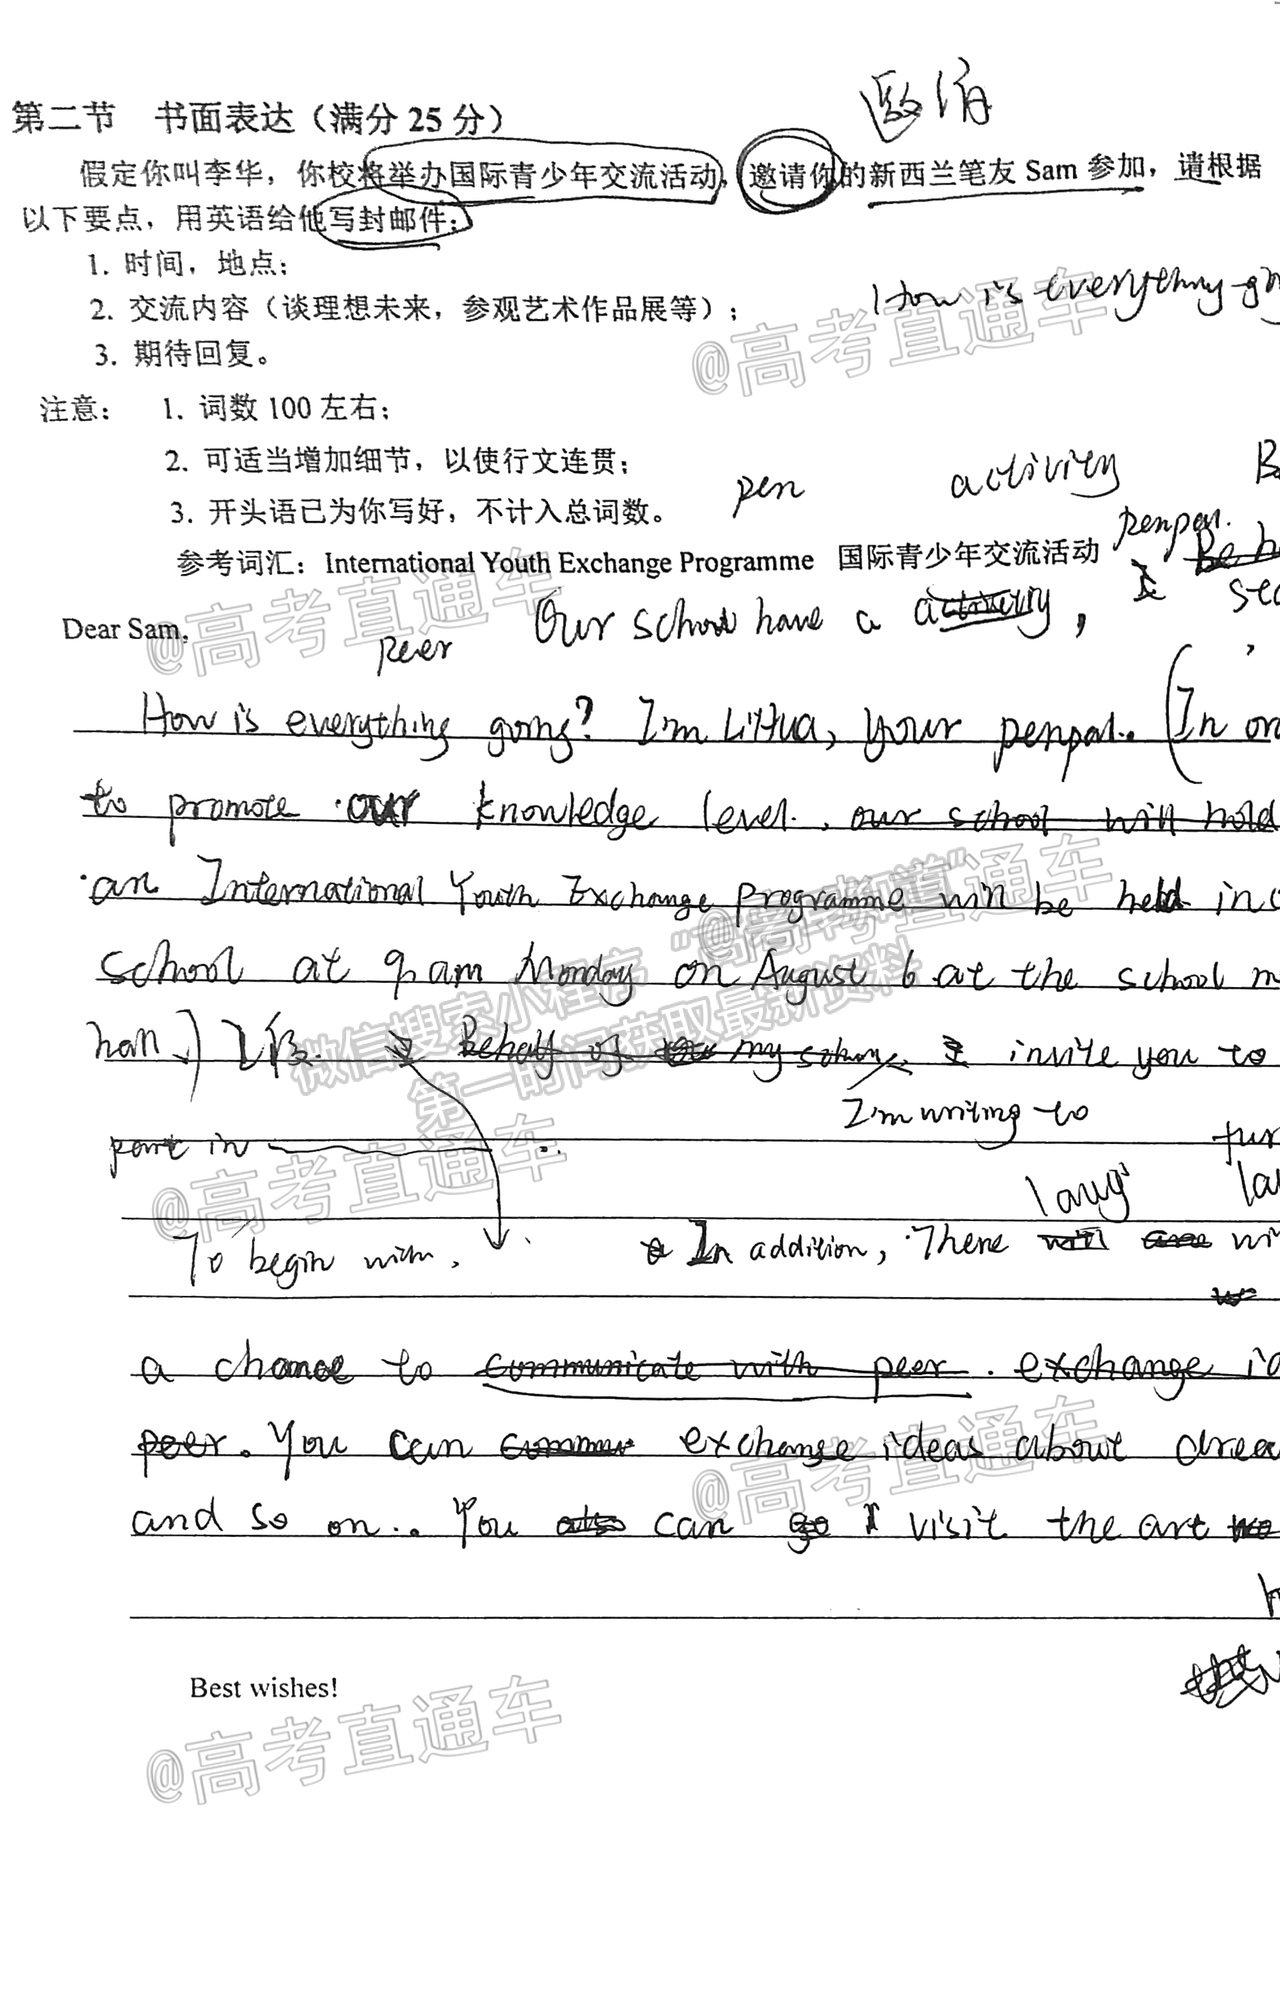 邀请
第二节 书面表达（满分25分）
假定你叫李华，你校将举办国际青少年交流活动，邀请你的新西兰笔友 Sam 参加，请根据
以下要点，用英语给他写封邮件：
1. 时间，地点；
2. 交流内容（谈理想未来，参观艺术作品展等）；
How is everything
3. 期待回复。
@高考直通车
注意： 1. 词数 100 左右；
2. 可适当增加细节，以使行文连贯；
pen activity
3. 开头语已为你写好，不计入总词数。
penpal.
参考词汇：International Youth Exchange Programme 国际青少年交流活动
@高考直通车
Our school have a activity,
Dear Sam,
peer
How is everything going? I'm LiHua, your penpal. (In
to promote our knowledge level. our school will hold
an International Youth Exchange Programme will be held in
@高考直通车
school at 9 am Monday on August 6 at the school
微信搜索小程序“高考早知道”
第一时间获取最新资料
hall.) Behalf of my school I invite you to
I'm writing to
part in
@高考直通车
To begin with. In addition, There will are
a chance to communicate with peer. exchange
peer. You can exchange ideas about
@高考直通车
and so on.. You also can go visit the art
Best wishes!
@高考直通车